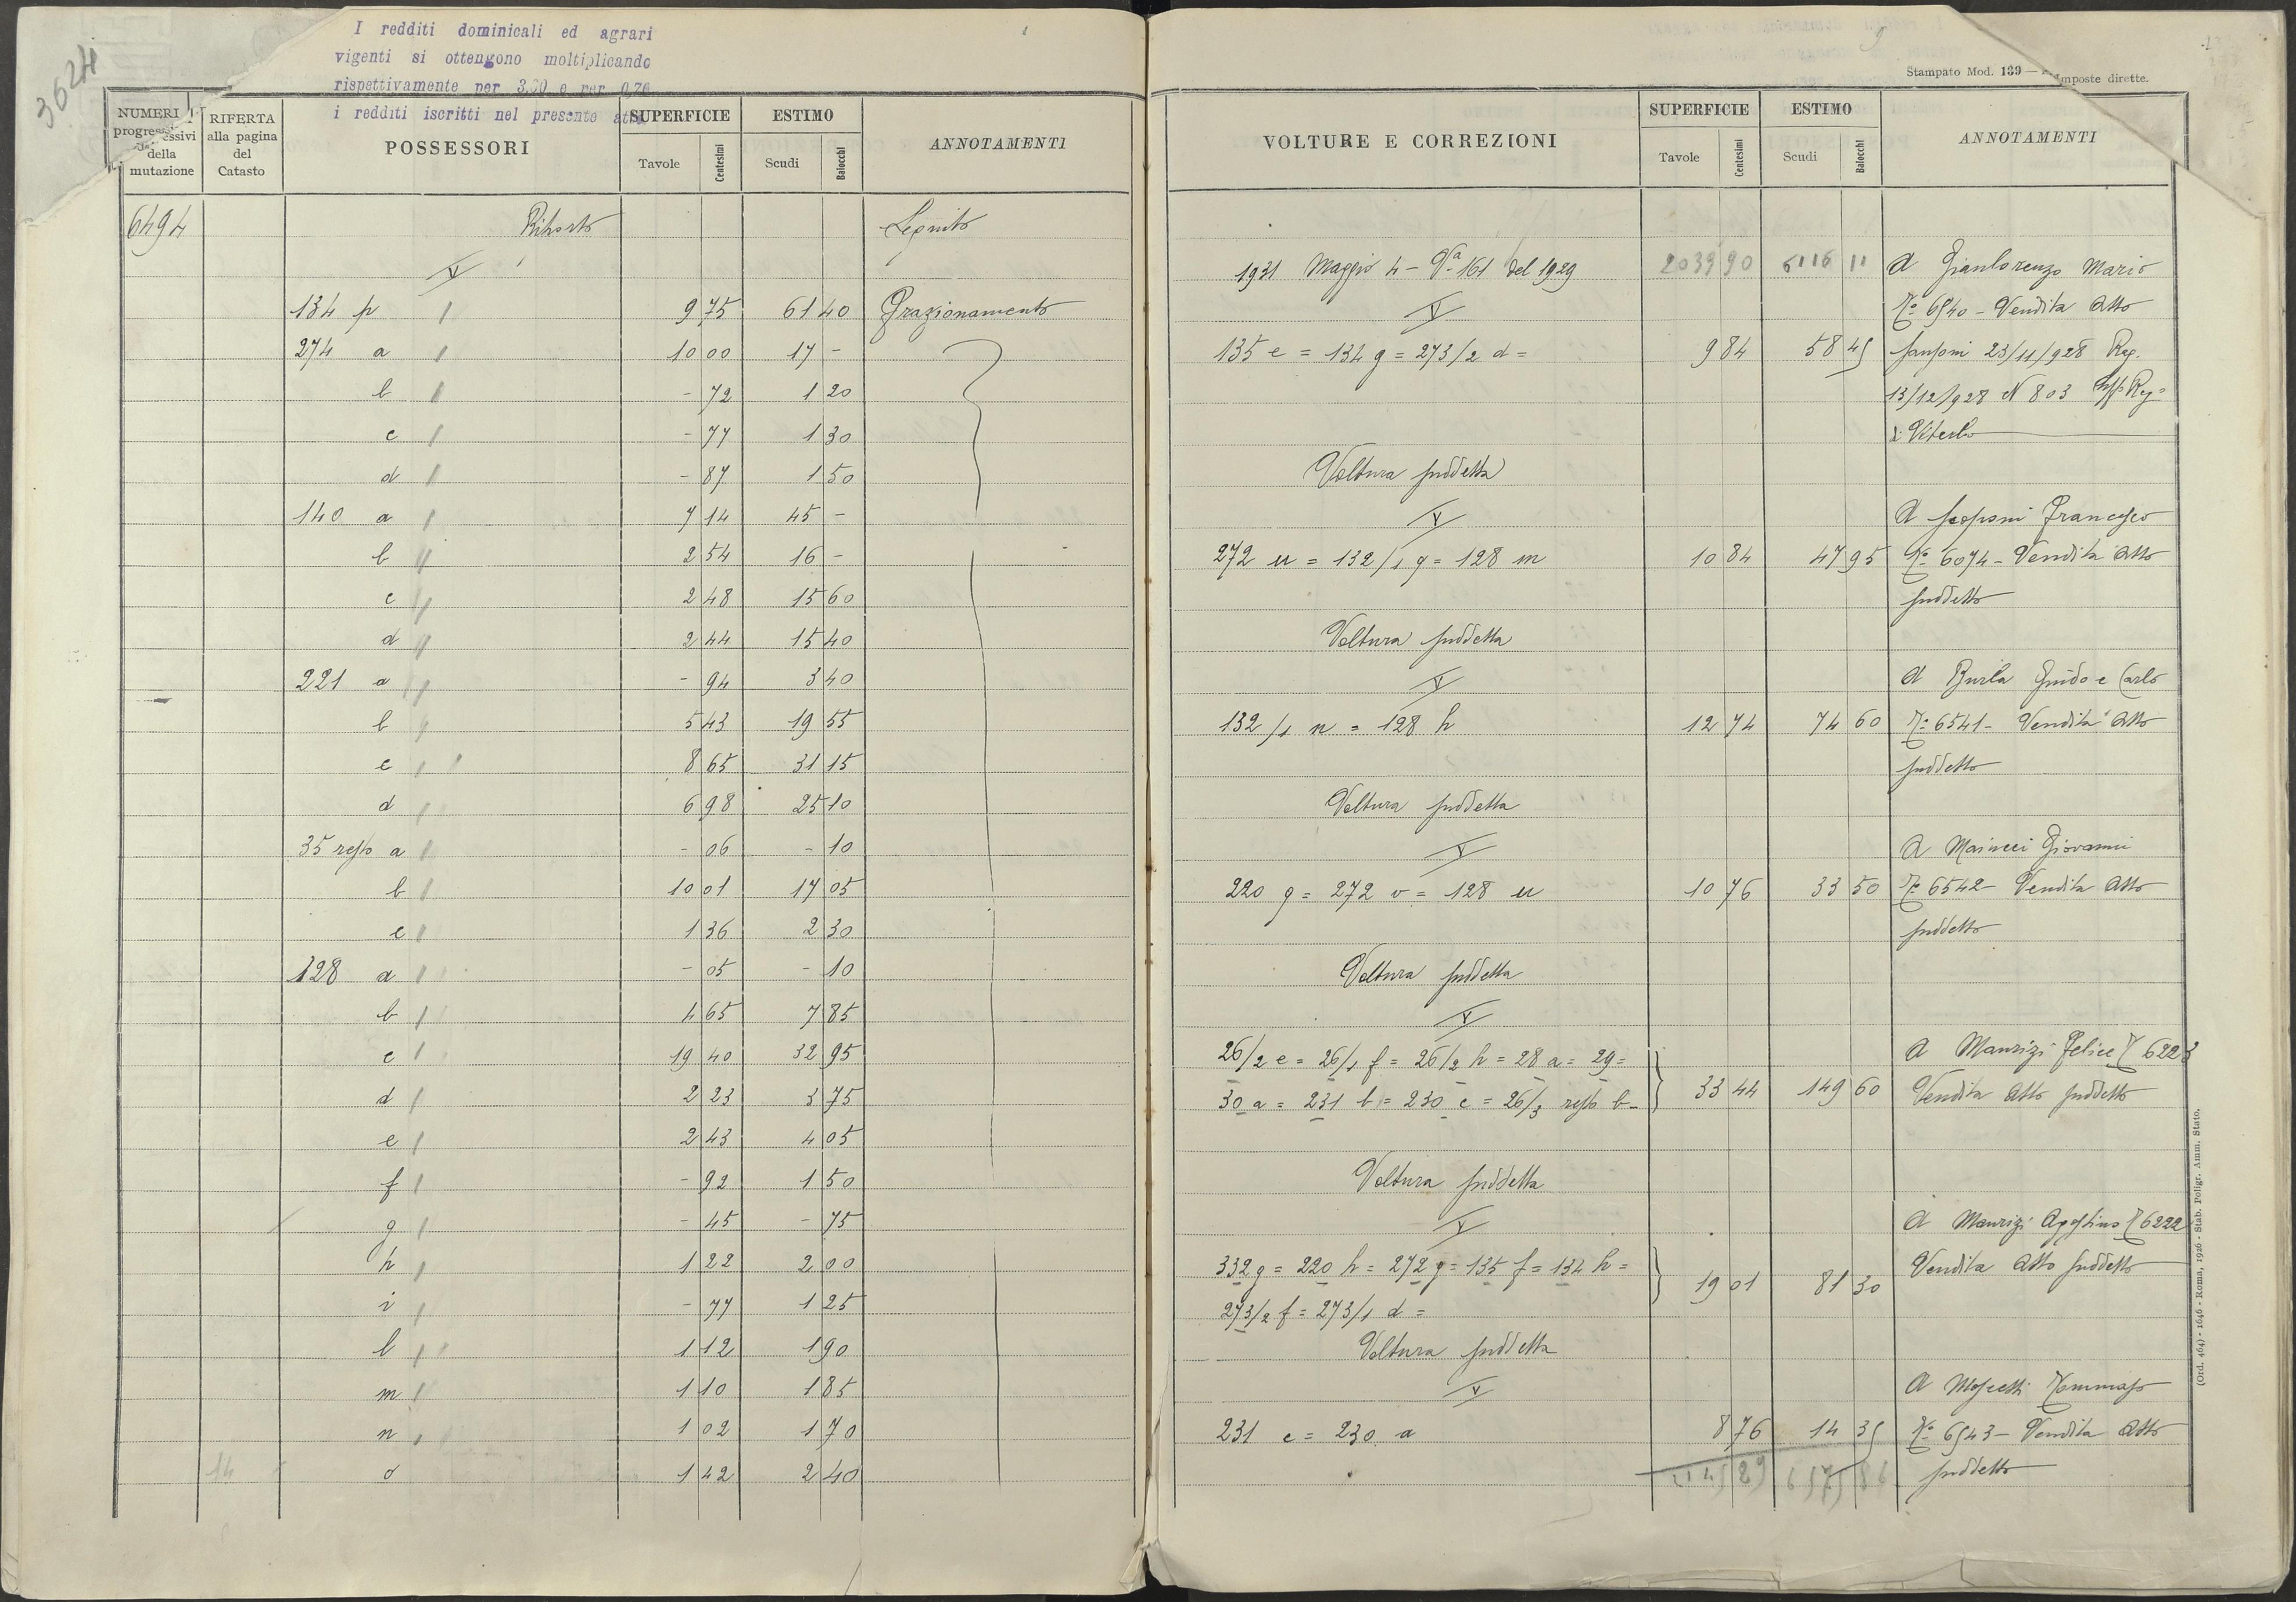 3624
I redditi dominicali ed agrari
vigenti si ottengono moltiplicando
rispettivamente per 3,60 e per 0,70
i redditi iscritti nel presente atto
NUMERI progressivi della mutazione | RIFERTA alla pagina del Catasto | POSSESSORI | SUPERFICIE Tavole Centesimi | ESTIMO Scudi Baiocchi | ANNOTAMENTI
6494 Riporto Seguito
V
134 p " 9 75 61 40 Frazionamento
274 a " 10 00 17 -
b " - 72 1 20
c " - 77 1 30
d " - 87 1 50
140 a " 7 14 45 -
b " 2 54 16 -
c " 2 48 15 60
d " 2 44 15 40
221 a " - 94 3 40
b " 5 43 19 55
c " 8 65 31 15
d " 6 98 25 10
35 resto a " - 06 - 10
b " 10 01 17 05
c " 1 36 2 30
128 a " - 05 - 10
b " 4 65 7 85
c " 19 40 32 95
d " 2 23 3 75
e " 2 43 4 05
f " - 92 1 50
g " - 45 - 75
h " 1 22 2 00
i " - 77 1 25
l " 1 12 1 90
m " 1 10 1 85
n " 1 02 1 70
14 o 1 42 2 40
Stampato Mod. 139 — Imposte dirette.
VOLTURE E CORREZIONI | SUPERFICIE Tavole Centesimi | ESTIMO Scudi Baiocchi | ANNOTAMENTI
1931 Maggio 4 - Va 161 del 1929 2039 90 6116 11 A Gianlorenzo Mario
V No 6540 - Vendita Atto
135 e = 134 g = 273/2 d = 9 84 58 45 Sansoni 23/11/928 Reg.
13/12/928 N 803 Uff. Reg=
di Viterbo
Voltura suddetta
V A Scoponi Francesco
272 u = 132/1 g = 128 m 10 84 47 95 No 6074 - Vendita Atto
suddetto
Voltura suddetta
V A Burla Guido e Carlo
132/1 n = 128 h 12 74 74 60 No 6541 - Vendita Atto
suddetto
Voltura suddetta
V A Mainucci Giovanni
220 g = 272 v = 128 u 10 76 33 50 No 6542 - Vendita Atto
suddetto
Voltura suddetta
V
26/2 e = 26/1 f = 26/2 h = 28 a = 29 = A Maurizi Felice No 6223
30 a = 231 b = 230 c = 26/3 resto b - 33 44 149 60 Vendita Atto suddetto
Voltura suddetta
V A Maurizi Agostino No 6222
332 g = 220 h = 272 q = 135 f = 134 h = Vendita Atto suddetto
19 01 81 30
273/2 f = 273/1 d =
Voltura suddetta
V A Moscetti Tommaso
231 c = 230 a 8 76 14 35 No 6543 - Vendita Atto
suddetto
(Ord. 464) - 1646 - Roma, 1926 - Stab. Poligr. Amm. Stato.